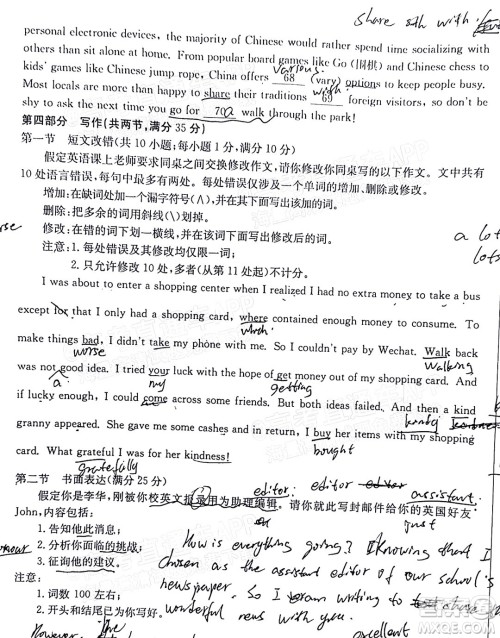 share sth with
personal electronic devices, the majority of Chinese would rather spend time socializing with
others than sit alone at home. From popular board games like Go (围棋) and Chinese chess to
various
kids' games like Chinese jump rope, China offers 68 (vary) options to keep people busy.
with
Most locals are more than happy to share their traditions 69 foreign visitors, so don't be
shy to ask the next time you go for 70 a walk through the park!
第四部分 写作(共两节,满分 35 分)
第一节 短文改错(共 10 小题;每小题 1 分,满分 10 分)
假定英语课上老师要求同桌之间交换修改作文,请你修改你同桌写的以下作文。文中共有
10 处语言错误,每句中最多有两处。每处错误仅涉及一个单词的增加、删除或修改。
增加:在缺词处加一个漏字符号(∧),并在其下面写出该加的词。
删除:把多余的词用斜线(\)划掉。
修改:在错的词下划一横线,并在该词下面写出修改后的词。
a lot
注意:1. 每处错误及其修改均仅限一词;
lots
2. 只允许修改 10 处,多者(从第 11 处起)不计分。
I was about to enter a shopping center when I realized I had no extra money to take a bus
except for that I only had a shopping card, where contained enough money to consume. To
which
make things bad, I didn't take my phone with me. So I couldn't pay by Wechat. Walk back
worse Walking
was not good idea. I tried your luck with the hope of get money out of my shopping card. And
a my getting
if lucky enough, I could come across some friends. But both ideas failed. And then a kind
granny appeared. She gave me some cashes and in return, I buy her items with my shopping
bought
card. What grateful I was for her kindness!
第二节 书面表达(满分 25 分)
editor: editor assistant
假定你是李华,刚被你校英文报录用为助理编辑。请你就此写封邮件给你的英国好友
John,内容包括:
1. 告知他此消息;
2. 分析你面临的挑战;
How is everything going? Knowing that I
3. 征询他的建议。
chosen as the assistant editor of our school's
注意:
newspaper. So I am writing to share
1. 词数 100 左右;
wonderful news with you.
2. 开头和结尾已为你写好。
However. the excellent